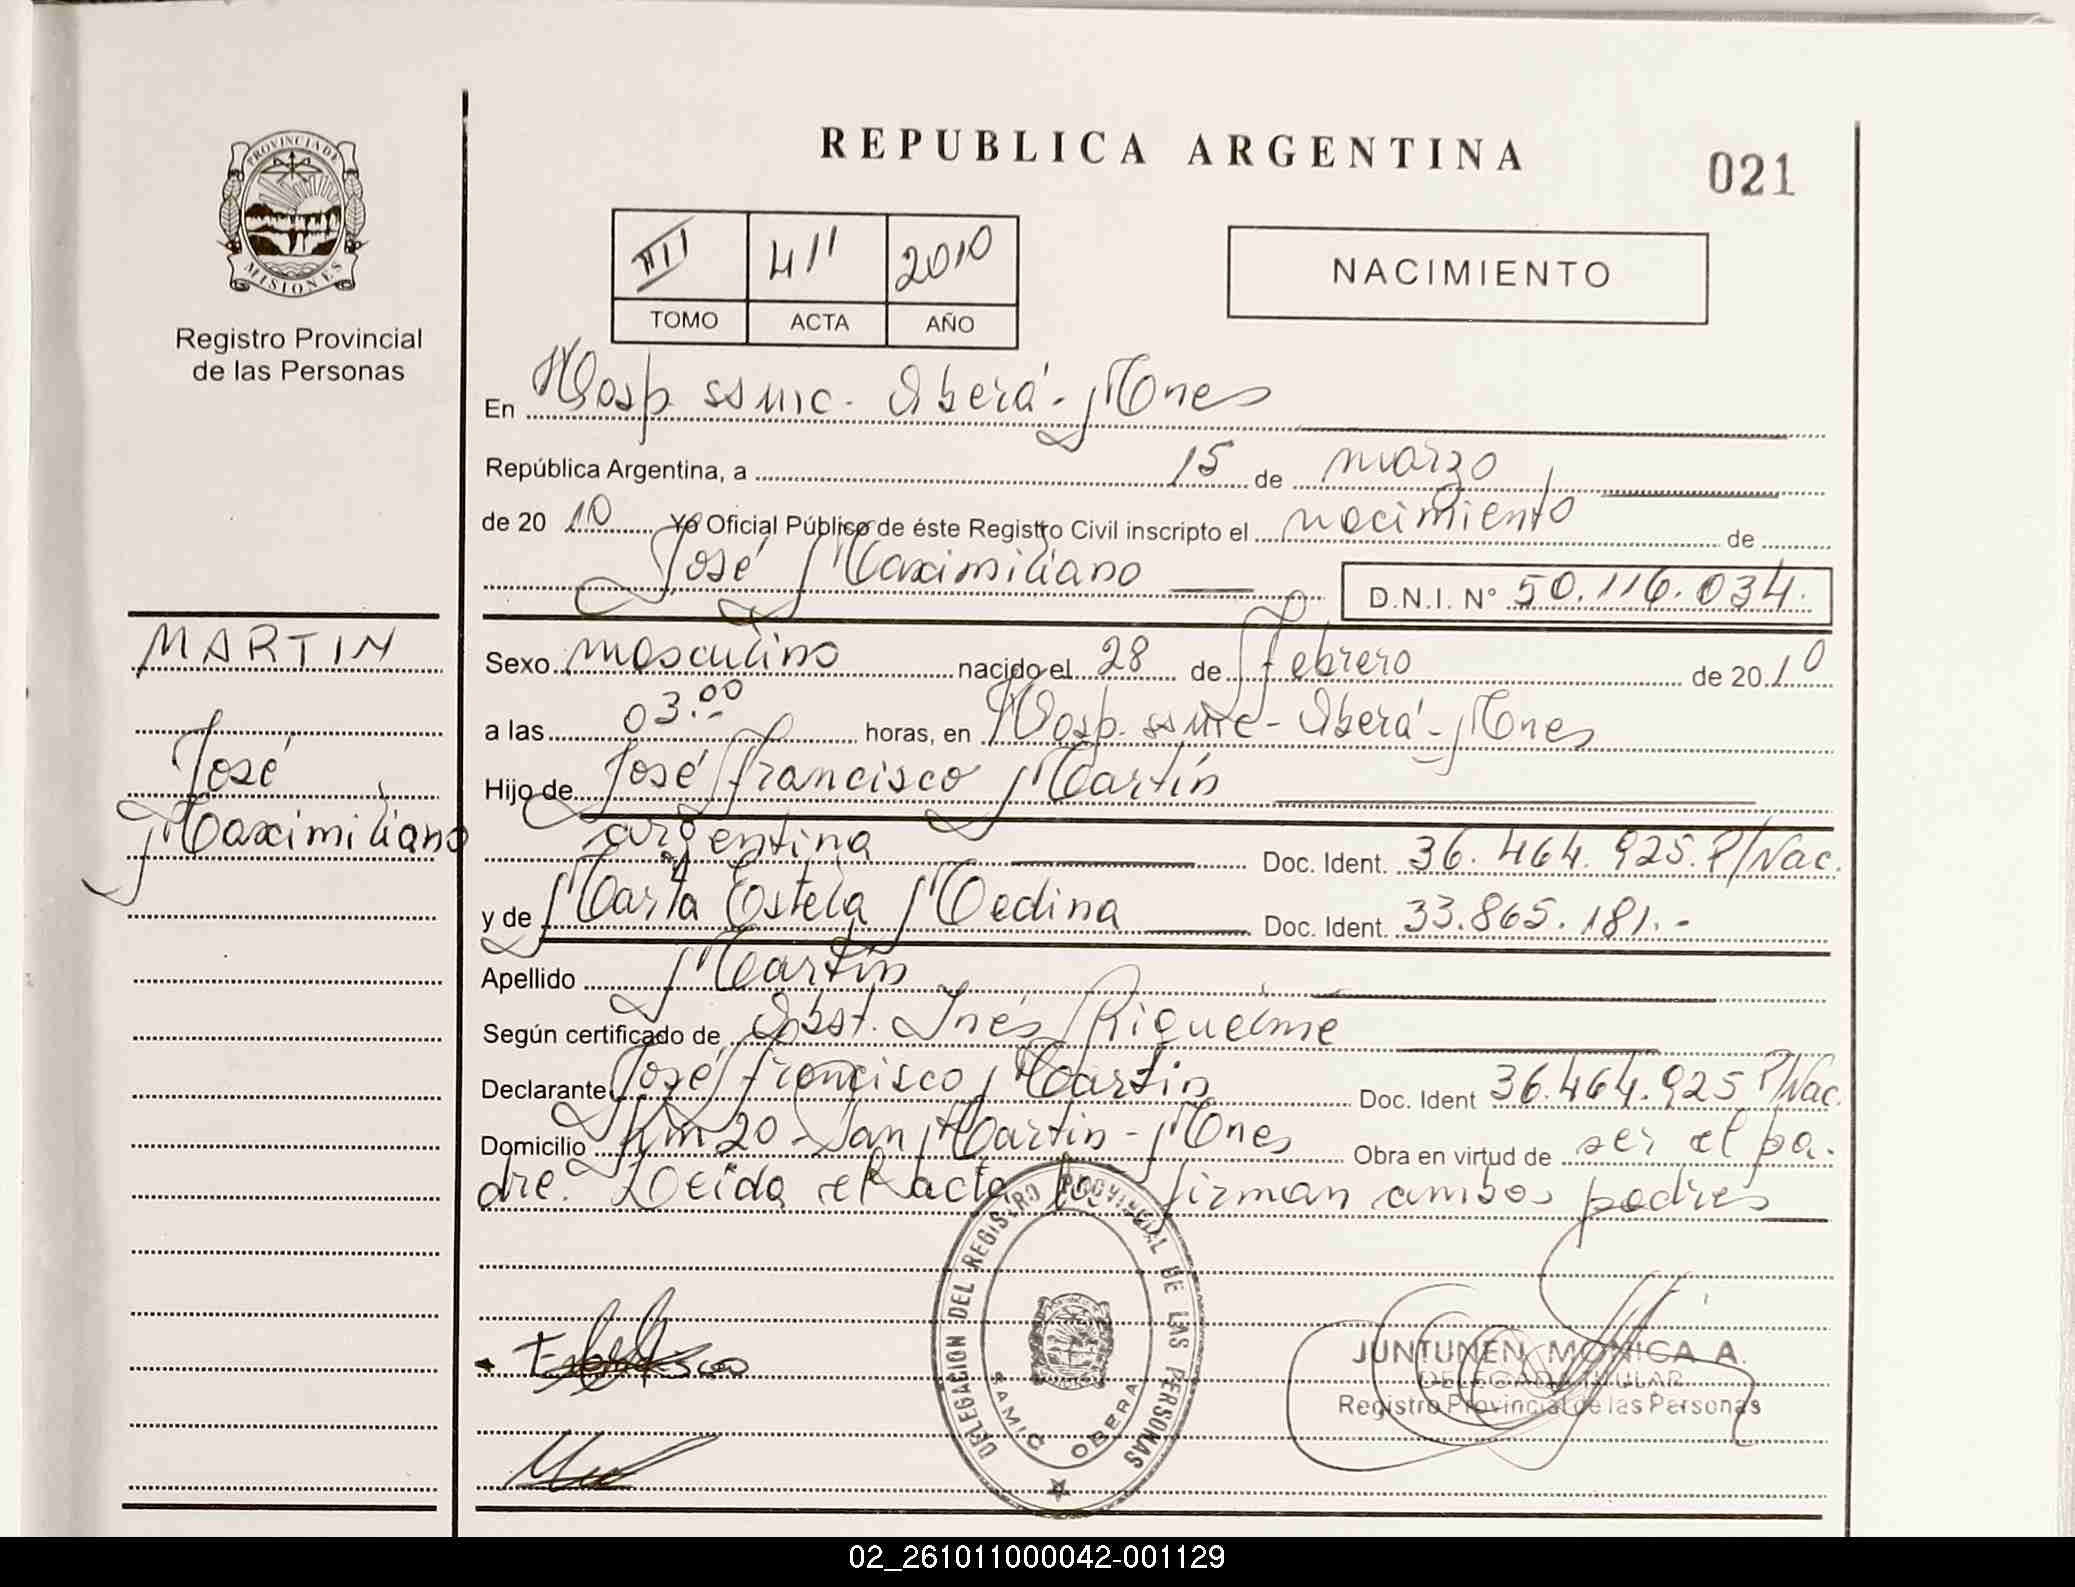 REPUBLICA ARGENTINA
021
PROVINCIA DE
MISIONES
Registro Provincial
de las Personas
III 411 2010
TOMO ACTA AÑO
NACIMIENTO
En Hosp. ssmic - Oberá - Mnes
República Argentina, a 15 de marzo
de 20 10 Yo Oficial Público de éste Registro Civil inscripto el nacimiento de
José Maximiliano D.N.I. N° 50.116.034.
MARTIN
José
Maximiliano
Sexo masculino nacido el 28 de febrero de 2010
a las 03.00 horas, en Hosp. ssmic - Oberá - Mnes
Hijo de José Francisco Martín
argentina Doc. Ident. 36.464.925. P/Nac.
y de María Estela Medina Doc. Ident. 33.865.181.-
Apellido Martín
Según certificado de Obst. Inés Riquelme
Declarante José Francisco Martín Doc. Ident 36.464.925 P/Nac.
Domicilio Km 20 - San Martín - Mnes Obra en virtud de ser el pa-
dre. Leída el acta la firman ambos padres
DELEGACION DEL REGISTRO PROVINCIAL DE LAS PERSONAS
SAMIC OBERA
JUNTUNEN MONICA A.
DELEGADA TITULAR
Registro Provincial de las Personas
02_261011000042-001129